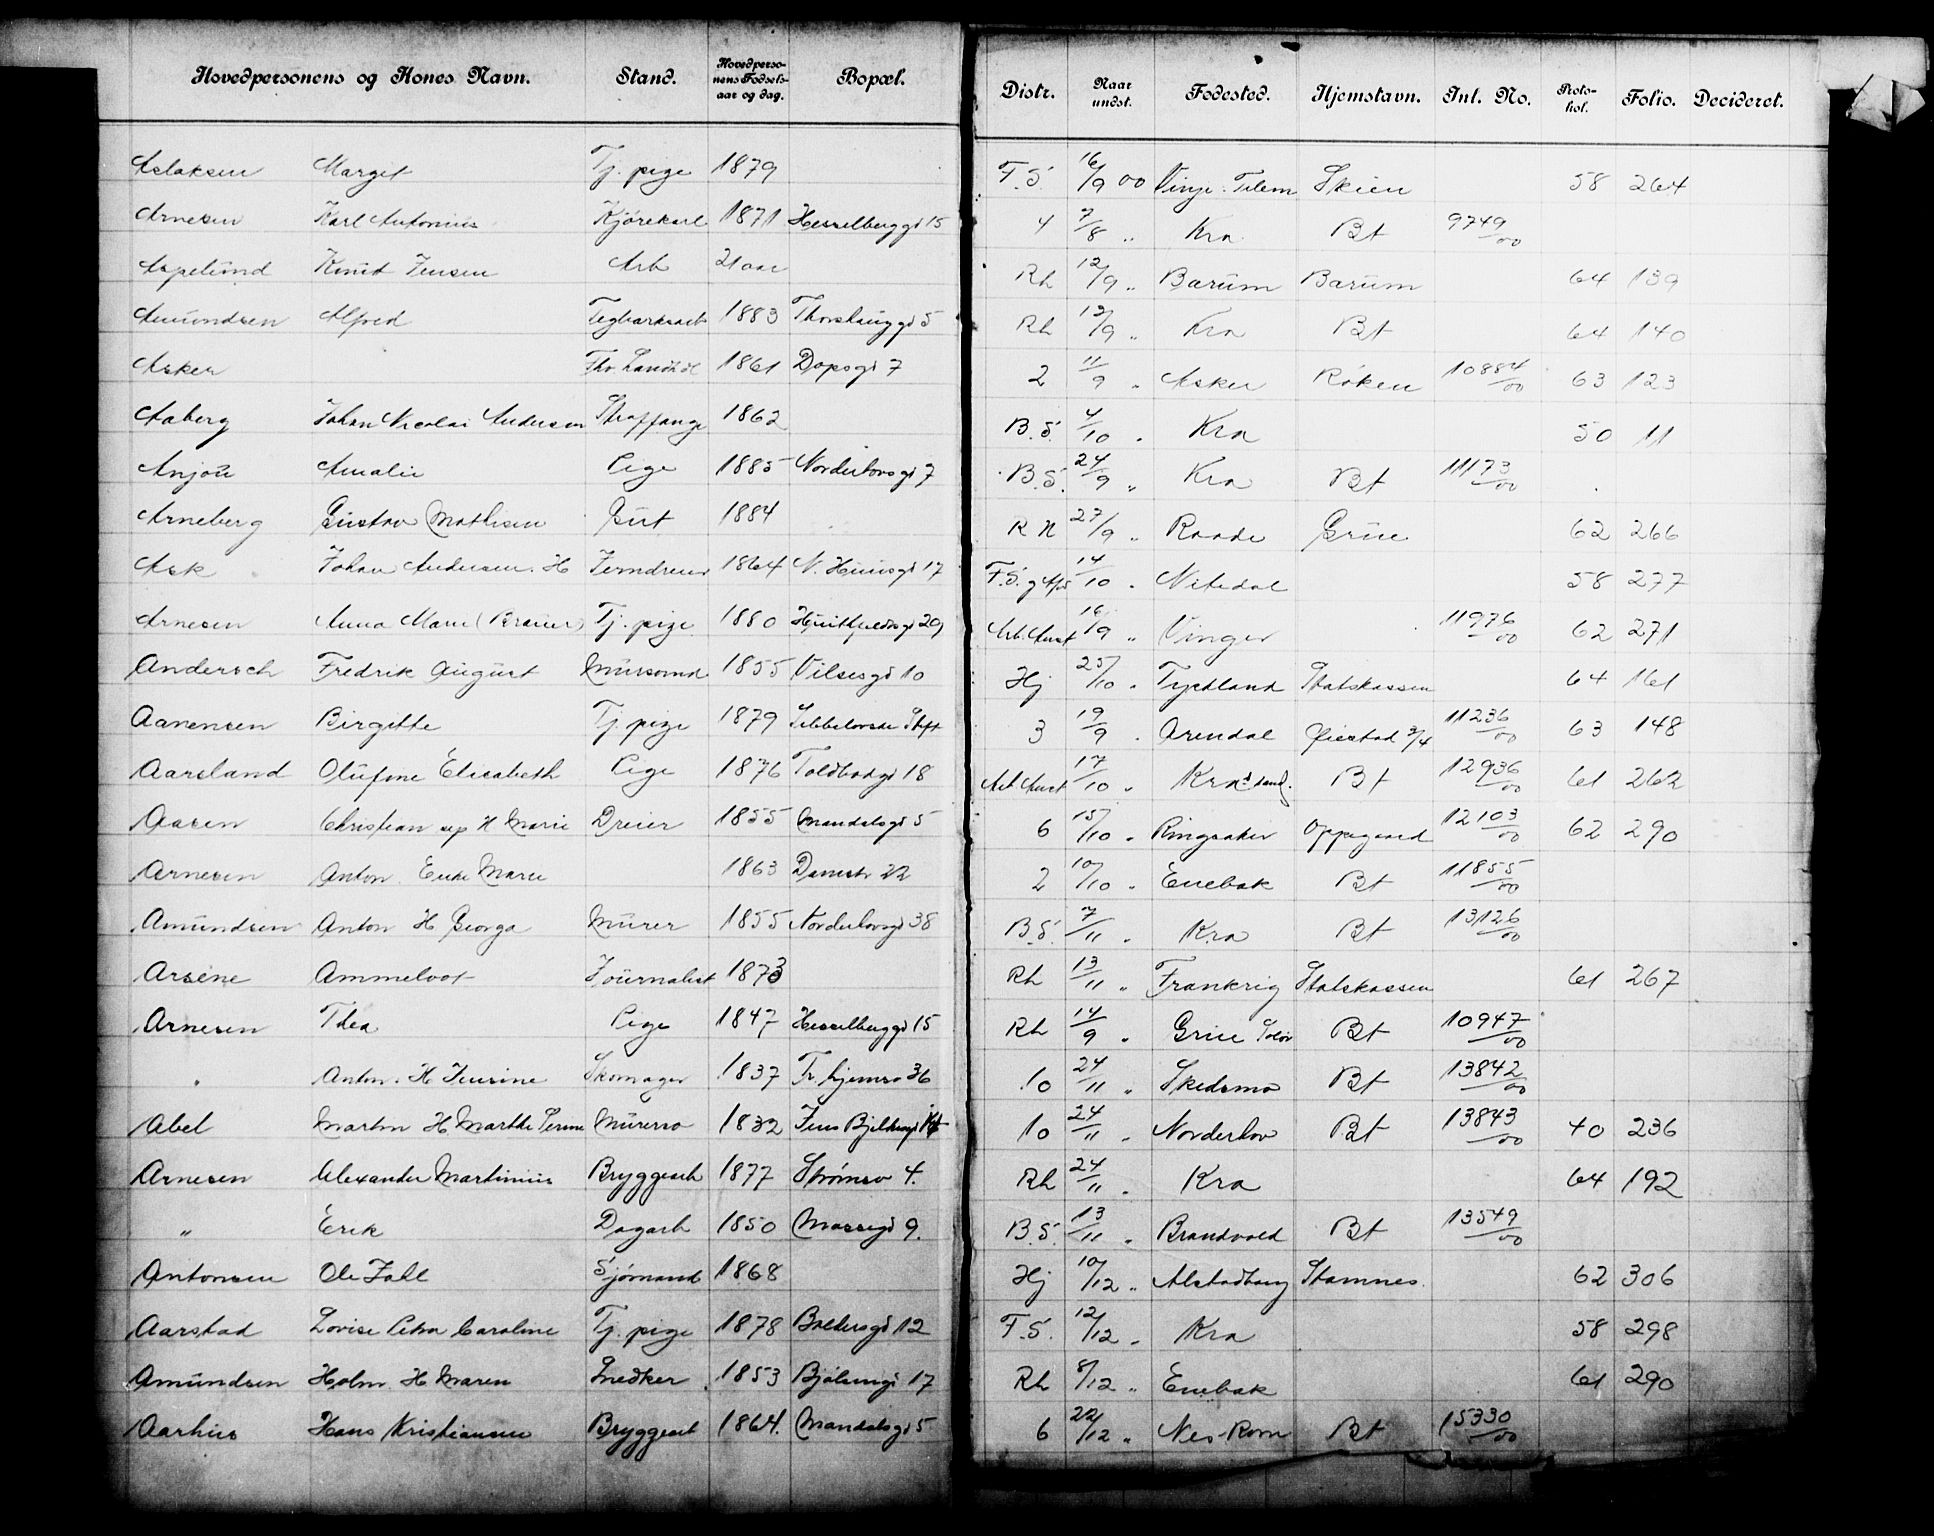 Hovedpersonens og Kones Navn. Stand. Hovedpersonens Fødselsaar og dag. Bopæl. Distr. Naar undst. Fødested. Hjemstavn. Int. No. Protokol. Folio. Decideret.
Aslaksen Margit Tj. pige 1879 F.S. 16/9 00 Vinje. Telem Skien 58 264
Arnesen Karl Antonius Kjørekarl 1871 Hesselberggd 15 4 7/8 " Kra Bt 9749/00
Aspelund Knut Jensen Arb 21 aar Rh 12/9 " Bærum Bærum 64 139
Amundsen Alfred Teglværksarb 1883 Thorshauggd 5 Rh 12/9 " Kra Bt 64 140
Asker 1861 Dopsgd 7 2 11/9 " Asker Røken 10884/00 63 123
Aaberg Johan Nicolai Andersen Straffange 1862 B.S. 4/10 " Kra 50 11
Anjou Amalie Pige 1885 Norderhovsgd 7 B.S. 24/9 " Kra Bt 11173/00
Arneberg Gustav Mathisen Gut 1884 R N 27/9 " Raade Grue 62 266
Ask Johan Andersen. H Jerndreier 1864 N. Huusgd 17 F.S. 14/10 " Nitedal 58 277
Arnesen Anna Marie (Brauer) Tj. pige 1880 Huitfeldtsgd 29 Arb. Anst 16/9 " Vinger 11976/00 62 271
Andersch Fredrik August Mursvend 1855 Vilsesgd 10 Hj 25/10 " Tydskland Statskassen 64 161
Aanensen Birgitte Tj. pige 1879 Sebbelovske Stift 3 19/9 " Arendal Øiestad 3/4 11236/00 63 148
Aarsland Olufine Elisabeth Pige 1876 Toldbodgd 18 Arb. Anst 17/10 " Kra.sand. Bt 12936/00 61 262
Aasen Christian sep H Marie Dreier 1855 Mandalsgd 5 6 15/10 " Ringsaker Oppegaard 12103/00 62 290
Arnesen Anton. Enke Marie 1863 Damstr 22 2 10/10 " Enebak Bt 11855/00
Amundsen Anton H Georga Murer 1855 Norderhovsgd 38 B.S. 7/11 " Kra Bt 13126/00
Arsène Ammeloot Journalist 1873 Rh 13/11 " Frankrig Statskassen 61 267
Arnesen Thea Pige 1847 Hesselberggd 15 Rh 14/9 " Grue Solør Bt 10947/00
" Anton. H Jensine Skomager 1837 Tr.hjemsv 36 10 24/11 " Skedsmo Bt 13842/00
Abel Martin H Marthe Perine Murersv 1832 Jens Bjelkesgd 14 10 24/11 " Norderhov Bt 13843/00 40 236
Arnesen Alexander Martinius Bryggearb 1877 Strømsv 4. Rh 24/11 " Kra 64 192
" Erik Dagarb 1850 Mossegd 9. B.S. 13/11 " Brandvold Bt 13549/00
Antonsen Ole Johl Sjømand 1868 Hj 10/12 " Alstadhaug Stamnes 62 306
Aarstad Lovise Petra Caroline Tj. pige 1878 Baldersgd 12 F.S. 12/12 " Kra 58 298
Amundsen Holm H Maren Snedker 1853 Bjølsengd 17 Rh 8/12 " Enebak 61 290
Aarhus Hans Kristiansen Bryggearb 1864. Mandalsgd 5 6 22/12 " Nes-Rom Bt 15330/00